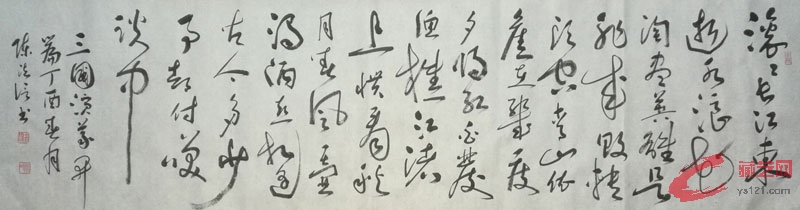 滚滚长江東
逝水浪花
淘尽英雄是
非成败转
头空青山依
舊在幾度
夕阳红白發
渔樵江渚
上惯看秋
月春风一壶
浊酒喜相逢
古今多少
事都付笑
谈中
三國演义开
篇丁酉春月
ys121.com